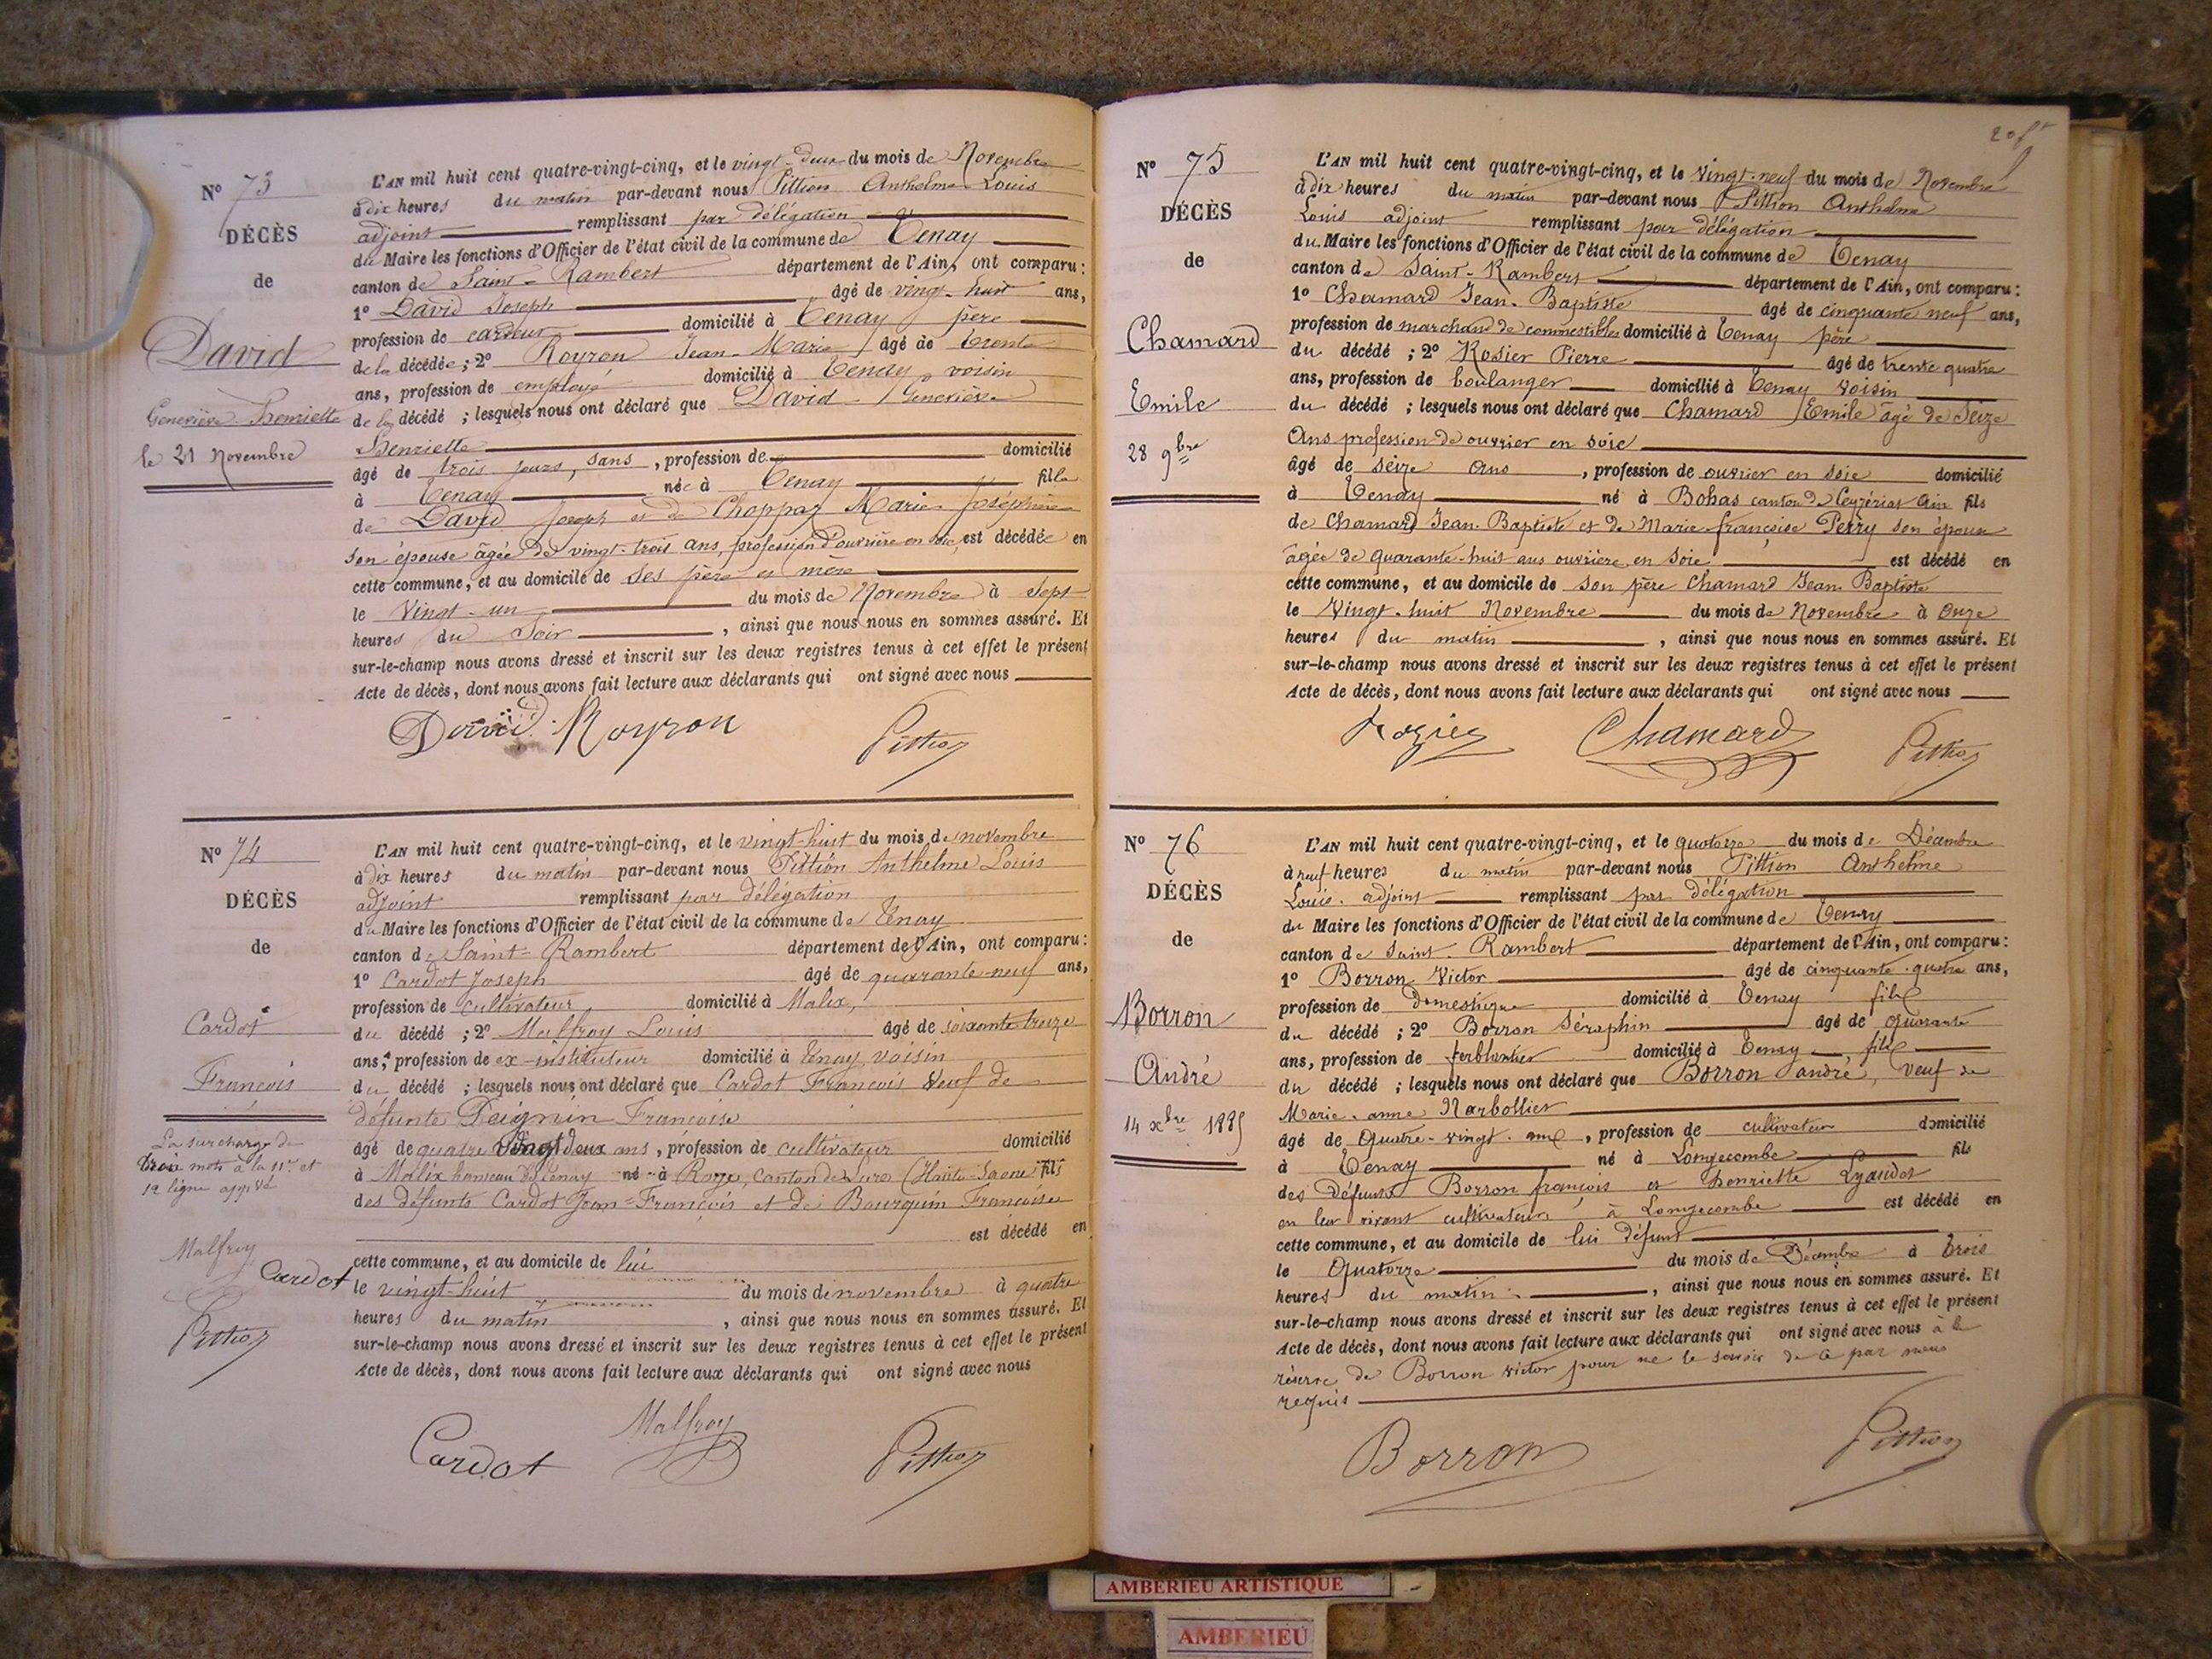 N° 73
DÉCÈS
de
David
Geneviève Henriette
le 21 Novembre
L'AN mil huit cent quatre-vingt-cinq, et le vingt-deux du mois de Novembre
à dix heures du matin par-devant nous Pittion Anthelme Louis
adjoint remplissant par délégation
du Maire les fonctions d'Officier de l'état civil de la commune de Tenay
canton de Saint-Rambert département de l'Ain, ont comparu :
1° David Joseph âgé de vingt-huit ans,
profession de cardeur domicilié à Tenay père
de la décédée ; 2° Royron Jean-Marie âgé de trente
ans, profession de employé domicilié à Tenay, voisin
de la décédé ; lesquels nous ont déclaré que David Geneviève
Henriette
âgé de trois jours, sans, profession de domicilié
à Tenay née à Tenay fille
de David Joseph et de Choppaz Marie Joséphine
son épouse âgée de vingt-trois ans, profession d'ouvrière en soie, est décédée en
cette commune, et au domicile de ses père et mère
le Vingt-un du mois de Novembre à sept
heures du Soir, ainsi que nous nous en sommes assuré. Et
sur-le-champ nous avons dressé et inscrit sur les deux registres tenus à cet effet le présent
Acte de décès, dont nous avons fait lecture aux déclarants qui ont signé avec nous
David Royron Pittion
N° 74
DÉCÈS
de
Cardot
François
La surcharge de
trois mots à la 11e et
12 ligne
Malfroy
Cardot
Pittion
L'AN mil huit cent quatre-vingt-cinq, et le vingt-huit du mois de novembre
à dix heures du matin par-devant nous Pittion Anthelme Louis
adjoint remplissant par délégation
du Maire les fonctions d'Officier de l'état civil de la commune de Tenay
canton de Saint-Rambert département de l'Ain, ont comparu :
1° Cardot Joseph âgé de quarante-neuf ans,
profession de cultivateur domicilié à Malix,
du décédé ; 2° Malfroy Louis âgé de soixante treize
ans, profession de ex-instituteur domicilié à Tenay voisin
du décédé ; lesquels nous ont déclaré que Cardot François Veuf de
défunte Peignin Françoise
âgé de quatre Vingt deux ans, profession de cultivateur domicilié
à Malix hameau de Tenay né à Roye, canton de Lure (Haute-Saone fils
des défunts Cardot Jean-François et de Bourquin Françoise
est décédé en
cette commune, et au domicile de lui
le vingt-huit du mois de novembre à quatre
heures du matin, ainsi que nous nous en sommes assuré. Et
sur-le-champ nous avons dressé et inscrit sur les deux registres tenus à cet effet le présent
Acte de décès, dont nous avons fait lecture aux déclarants qui ont signé avec nous
Cardot Malfroy Pittion
N° 75
DÉCÈS
de
Chamard
Emile
28 9bre
L'AN mil huit cent quatre-vingt-cinq, et le Vingt-neuf du mois de Novembre
à dix heures du matin par-devant nous Pittion Anthelme
Louis adjoint remplissant par délégation
du Maire les fonctions d'Officier de l'état civil de la commune de Tenay
canton de Saint-Rambert département de l'Ain, ont comparu :
1° Chamard Jean-Baptiste âgé de cinquante neuf ans,
profession de marchand de commestibles domicilié à Tenay père
du décédé ; 2° Rosier Pierre âgé de trente quatre
ans, profession de boulanger domicilié à Tenay voisin
du décédé ; lesquels nous ont déclaré que Chamard Emile âgé de Seize
Ans profession de ouvrier en soie
âgé de seize ans, profession de ouvrier en soie domicilié
à Tenay né à Bohas canton de Ceyzériat Ain fils
de Chamard Jean-Baptiste et de Marie-françoise Perry son épouse
âgée de quarante-huit ans ouvrière en soie est décédé en
cette commune, et au domicile de son père Chamard Jean Baptiste
le Vingt-huit Novembre du mois de Novembre à onze
heures du matin, ainsi que nous nous en sommes assuré. Et
sur-le-champ nous avons dressé et inscrit sur les deux registres tenus à cet effet le présent
Acte de décès, dont nous avons fait lecture aux déclarants qui ont signé avec nous
Rozier Chamard Pittion
N° 76
DÉCÈS
de
Borron
André
14 xbre 1885
L'AN mil huit cent quatre-vingt-cinq, et le quatorze du mois de Décembre
à neuf heures du matin par-devant nous Pittion Anthelme
Louis adjoint remplissant par délégation
du Maire les fonctions d'Officier de l'état civil de la commune de Tenay
canton de Saint-Rambert département de l'Ain, ont comparu :
1° Borron Victor âgé de cinquante-quatre ans,
profession de domestique domicilié à Tenay fils
du décédé ; 2° Borron Séraphin âgé de quarante
ans, profession de ferblantier domicilié à Tenay, fils
du décédé ; lesquels nous ont déclaré que Borron andré, veuf de
Marie-anne Narbollier
âgé de Quatre-vingt-, profession de cultivateur domicilié
à Tenay né à Longecombe fils
des défunts Borron françois et henriette
en leur vivant cultivateurs à Longecombe est décédé en
cette commune, et au domicile de lui défunt
le Quatorze du mois de Décembre à trois
heures du matin, ainsi que nous nous en sommes assuré. Et
sur-le-champ nous avons dressé et inscrit sur les deux registres tenus à cet effet le présent
Acte de décès, dont nous avons fait lecture aux déclarants qui ont signé avec nous à la
réserve de Borron victor pour ne le savoir de ce par nous
requis
Borron Pittion
AMBERIEU ARTISTIQUE
AMBERIEU